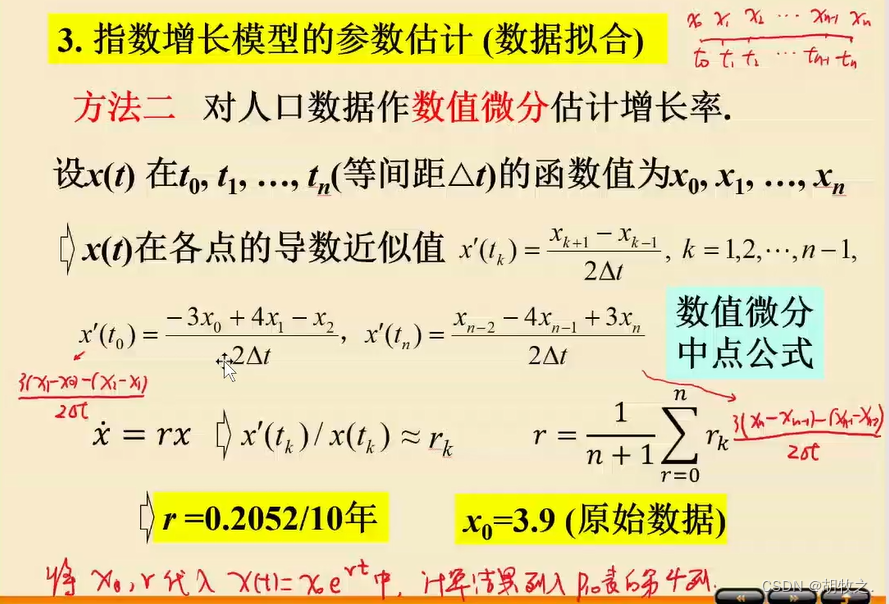 3. 指数增长模型的参数估计 (数据拟合)
x₀ x₁ x₂ ⋯ xₙ₋₁ xₙ
t₀ t₁ t₂ ⋯ tₙ₋₁ tₙ
方法二 对人口数据作数值微分估计增长率.
设x(t) 在t₀, t₁, …, tₙ(等间距△t)的函数值为x₀, x₁, …, xₙ
x(t)在各点的导数近似值 x′(tₖ) = (xₖ₊₁ − xₖ₋₁) / 2Δt , k = 1,2,⋯,n−1,
x′(t₀) = (−3x₀ + 4x₁ − x₂) / 2Δt , x′(tₙ) = (xₙ₋₂ − 4xₙ₋₁ + 3xₙ) / 2Δt
数值微分
中点公式
3(x₁−x₀)−(x₂−x₁) / 2Δt
3(xₙ−xₙ₋₁)−(xₙ₋₁−xₙ₋₂) / 2Δt
ẋ = rx ⇨ x′(tₖ) / x(tₖ) ≈ rₖ
r = 1/(n+1) ∑_{r=0}^{n} rₖ
r =0.2052/10年 x₀=3.9 (原始数据)
将 x₀, r 代入 x(t)= x₀eʳᵗ 中, 计算结果列入 P₁₀表的第4列.
CSDN @胡牧之.